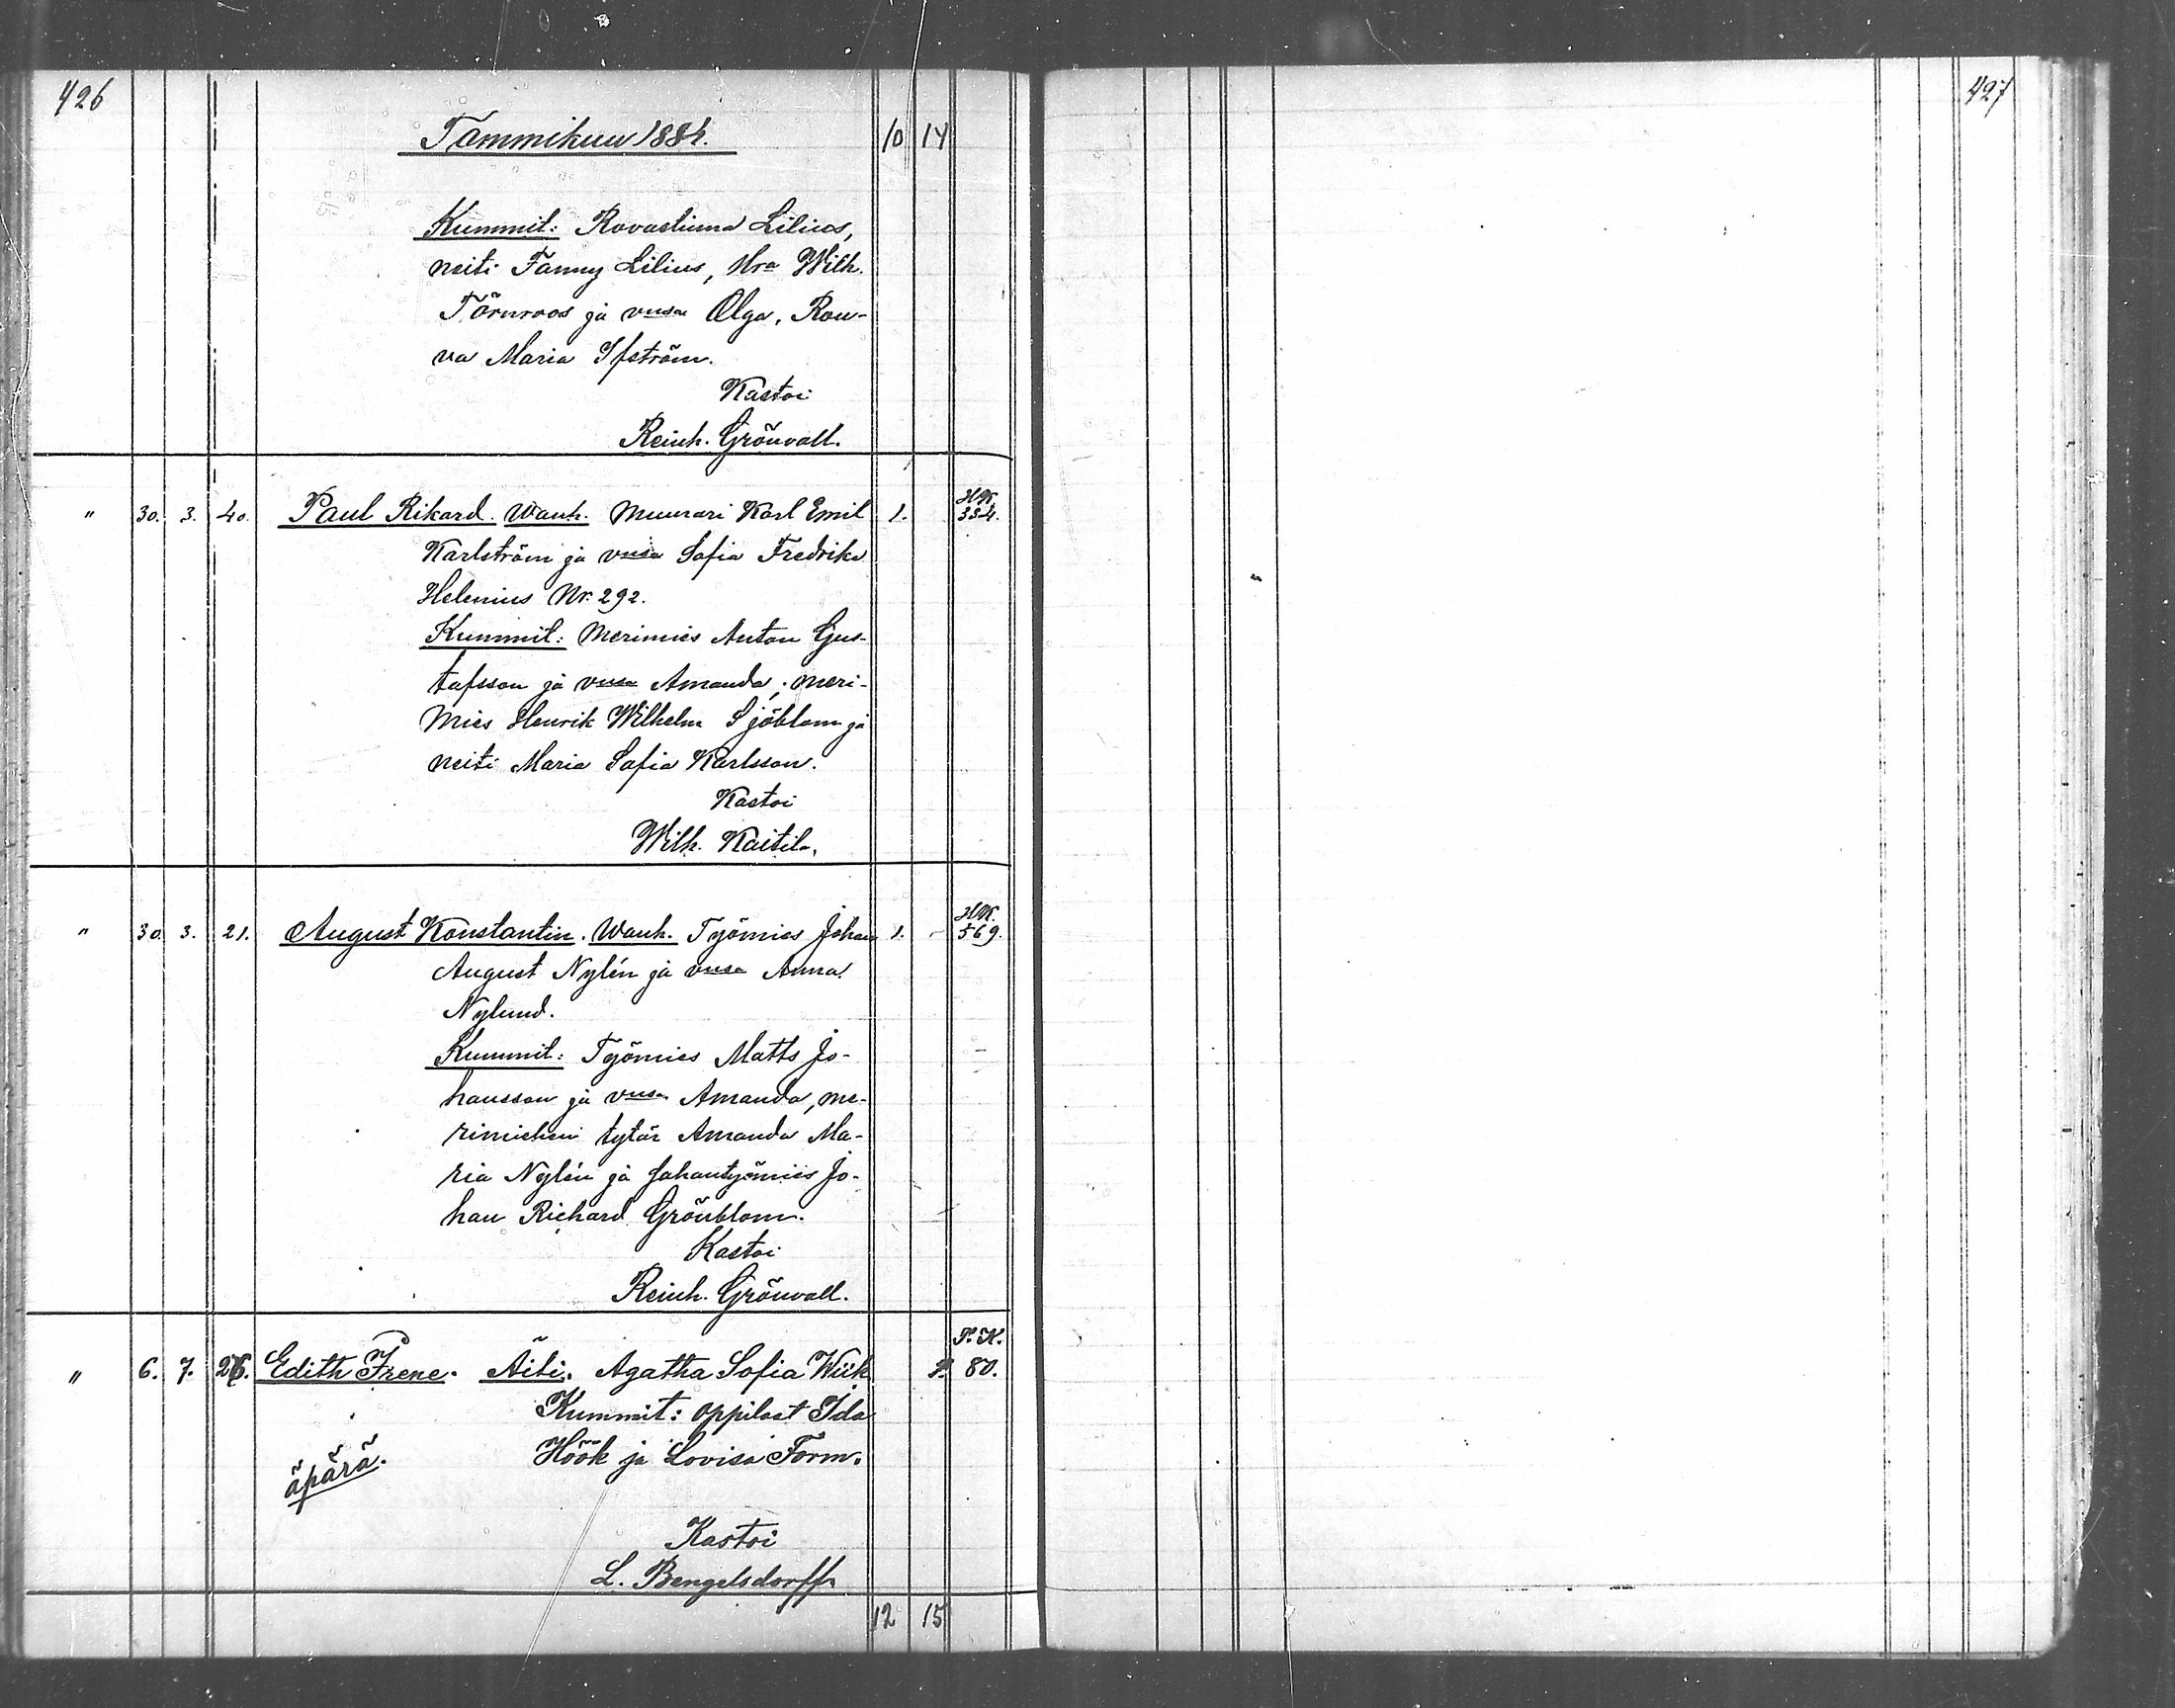 426
427
Tammikuu 1884. 10 14
Kummit: Rovastinna Lilius,
neiti Fanny Lilius, Hra Wilh.
Törnroos ja vmsa Olga, Rou-
va Maria Ifström.
Kastoi
Reinh. Grönvall.
H.K.
" 30. 3. 40. Paul Rikard. Wanh. Muurari Karl Emil 1. 334.
Karlström ja vmsa Sofia Fredrika
Helenius Nr. 292.
Kummit: Merimies Anton Gus-
tafsson ja vmsa Amanda, meri-
mies Henrik Wilhelm Sjöblom ja
neiti Maria Sofia Karlsson.
Kastoi
Wilh. Kaitila.
H.K.
" 30. 3. 21. August Konstantin. Wanh. Työmies Johan 1. 569.
August Nylén ja vmsa Anna
Nylund.
Kummit: Työmies Matts Jo-
hansson ja vmsa Amanda, me-
rimiehen tytär Amanda Ma-
ria Nylén ja Sahantyömies Jo-
han Richard Grönblom.
Kastoi
Reinh. Grönvall.
P. K.
" 6. 7. 26. Edith Irene. Äiti. Agatha Sofia Wiik 1. 80.
Kummit: oppilaat Ida
äpärä. Höök ja Lovisa Form.
Kastoi
L. Bengelsdorff
12 15